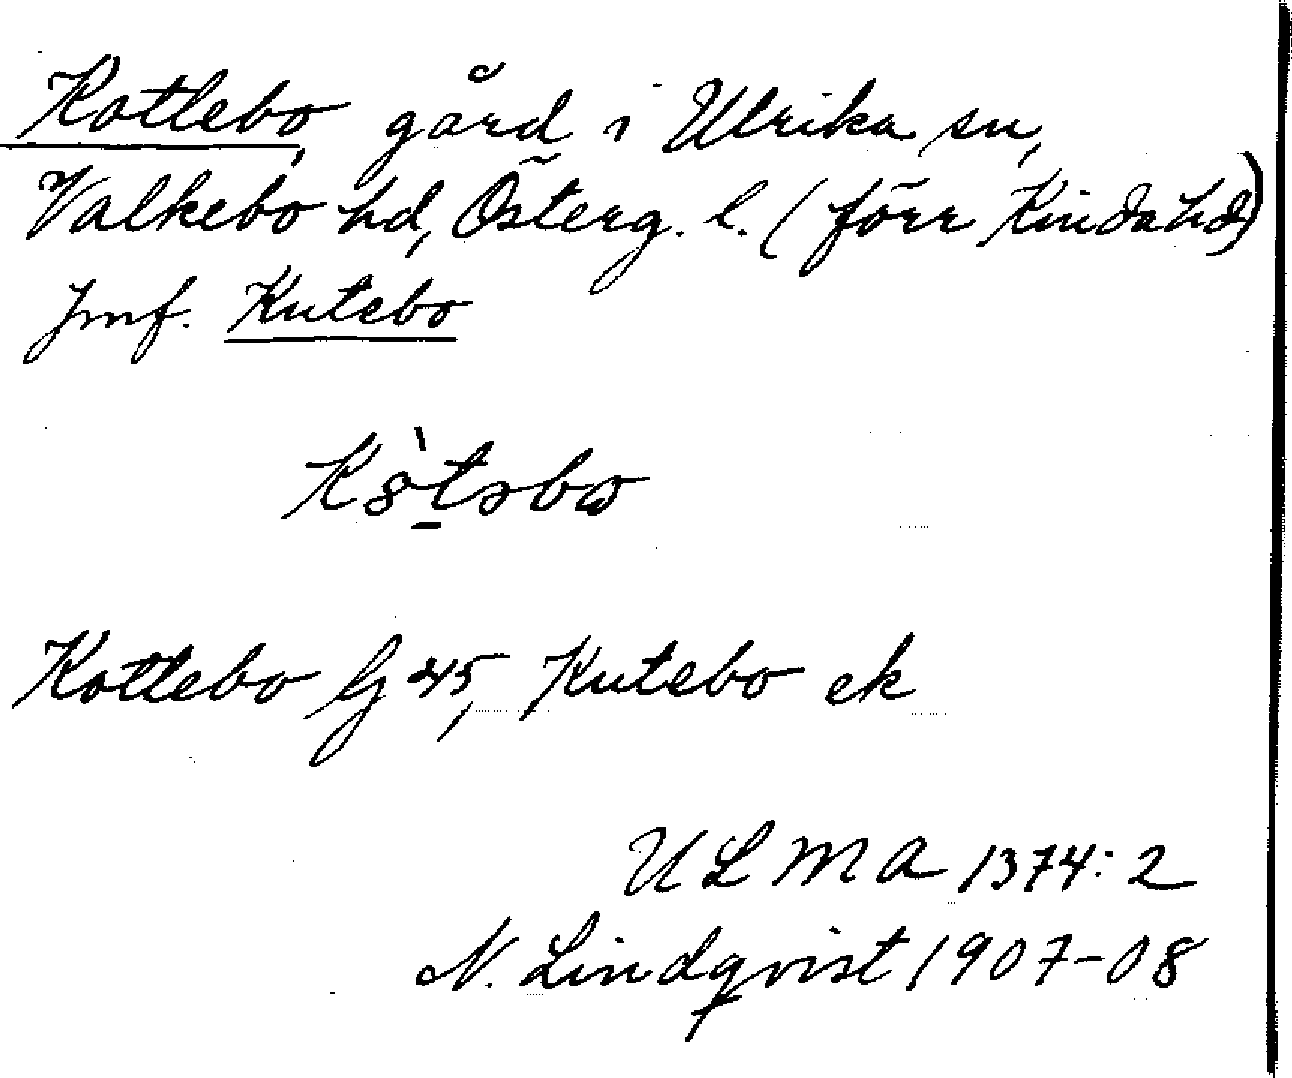 Kotlebo, gård i Ulrika sn,
Valkebo hd, Österg. l. (förr Kinda hd)
Jmf. Kutebo
K8̀təbω
Kottebo Gj 45, Kutebo ek
ULMA 1374:2
N. Lindqvist 1907-08